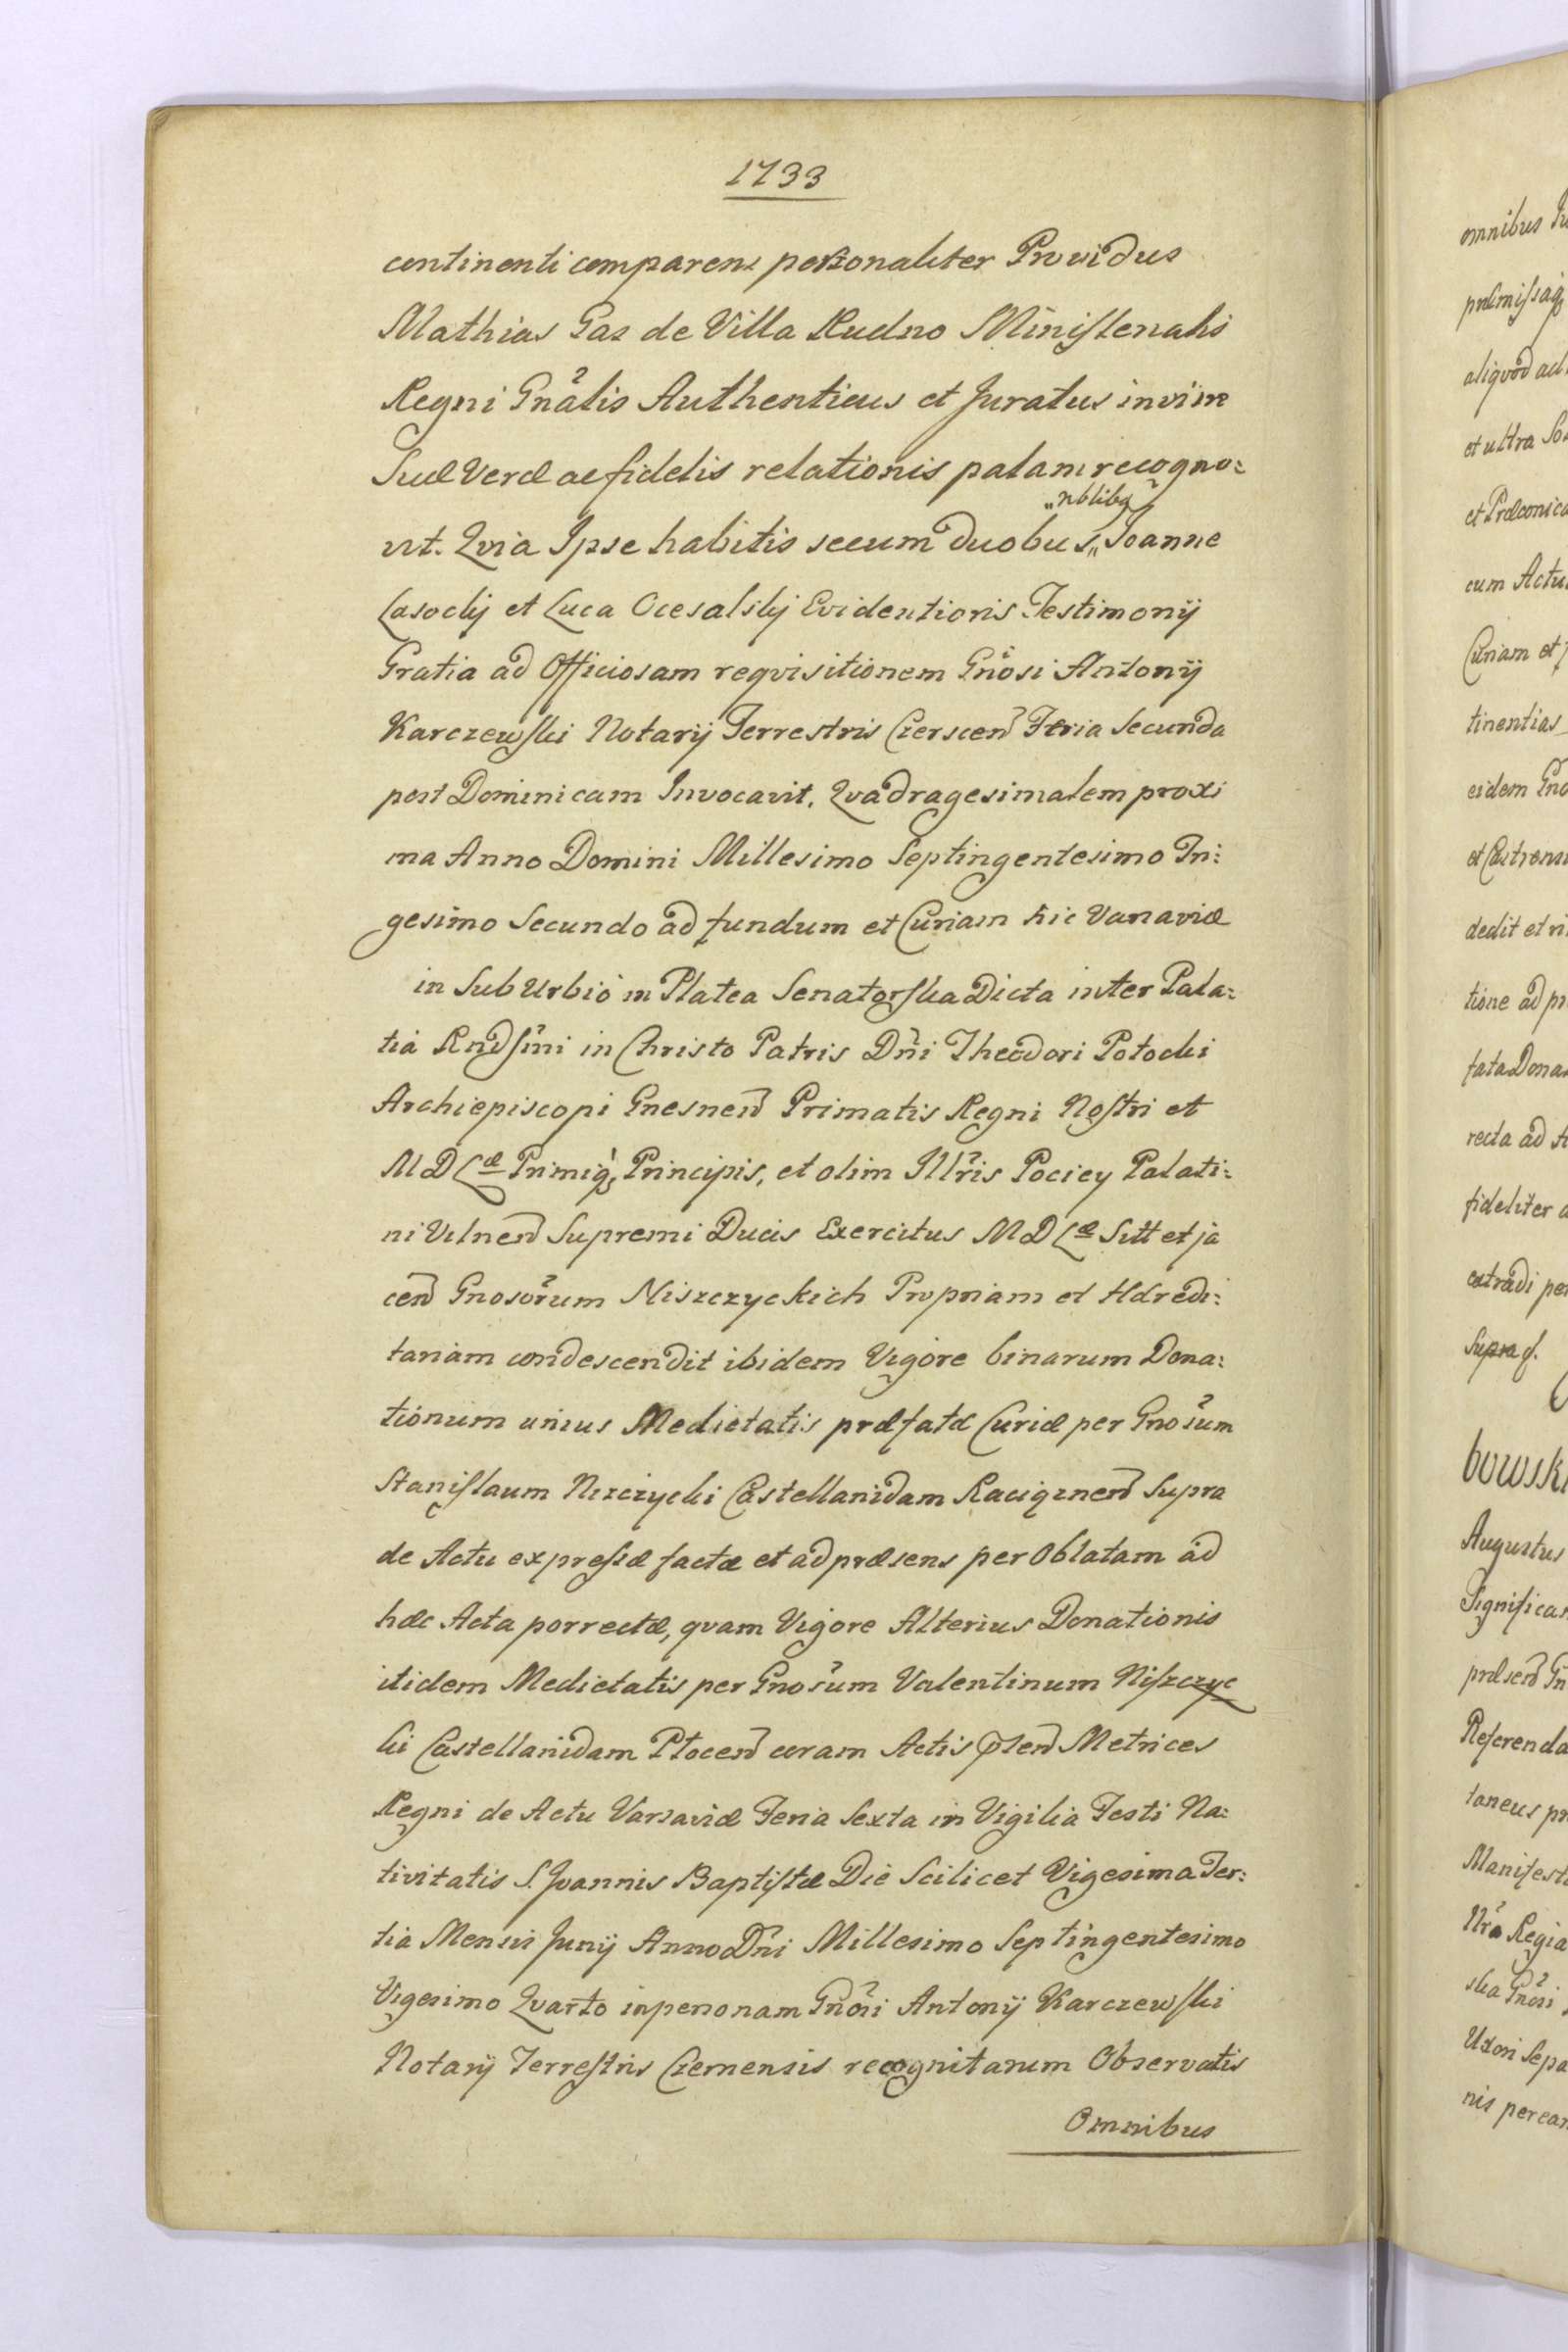 1733
continenti comparens personaliter Providus
Mathias Gaz de Villa Rudno Ministerialis
Regni Gnalis Authenticus et Juratus in vim
Suæ Veræ ac fidelis relationis palam recogno:
vit. Qvia Ipse habitis secum duobus „nblibq„ Joanne
Lasocky et Luca Ocesalsky Evidentioris Testimonÿ
Gratia ad Officiosam reqvisitionem Gnosi Antonÿ
Karczewski Notarÿ Terrestris Czerscen Feria Secunda
post Dominicam Invocavit, Qvadragesimalem proxi
ma Anno Domini Millesimo Septingentesimo Tri:
gesimo Secundo ad fundum et Curiam hic Varsaviæ
in Sub Urbio in Platea Senatorska Dicta inter Pala:
tia Rndsmi in Christo Patris Dni Theodori Potocki
Archiepiscopi Gnesnen Primatis Regni Nostri et
M D Læ Primiq, Principis, et olim Illris Pociey Palati:
ni Vilnen Supremi Ducis Exercitus M D Læ Sitt et ja
cen Gnosorum Niszczyckich Propriam et Hæredi:
tariam condescendit ibidem Vigore binarum Dona:
tionum unius Medietatis præfatæ Curiæ per Gnosum
Stanislaum Niszczycki Castellanidam Raciąznen Supra
de Actu expressæ factæ et ad præsens per Oblatam ad
hæc Acta porrectæ, qvam Vigore Alterius Donationis
itidem Medietatis per Gnosum Valentinum Niszczyc
ki Castellanidam Płocen coram Actis psen Metrices
Regni de Actu Varsaviæ Feria Sexta in Vigilia Festi Na:
tivitatis S. Joannis Baptistæ Die Scilicet Vigesima Ter:
tia Mensis Junÿ Anno Dni Millesimo Septingentesimo
Vigesimo Qvarto in personam Gnosi Antonÿ Karczewski
Notarÿ Terrestris Czernensis recognitarum Observatis
Omnibus
omnibus
præmissaq
aliqvod
et ultra
cum
Curiam et
tinentias
eidem
dedit et
tione ad
fata
recta ad
fideliter
extradi
Supra
bowski
Augustus
Referenda
taneus
Nra Regia
ska Gnosi
Uxori
nis